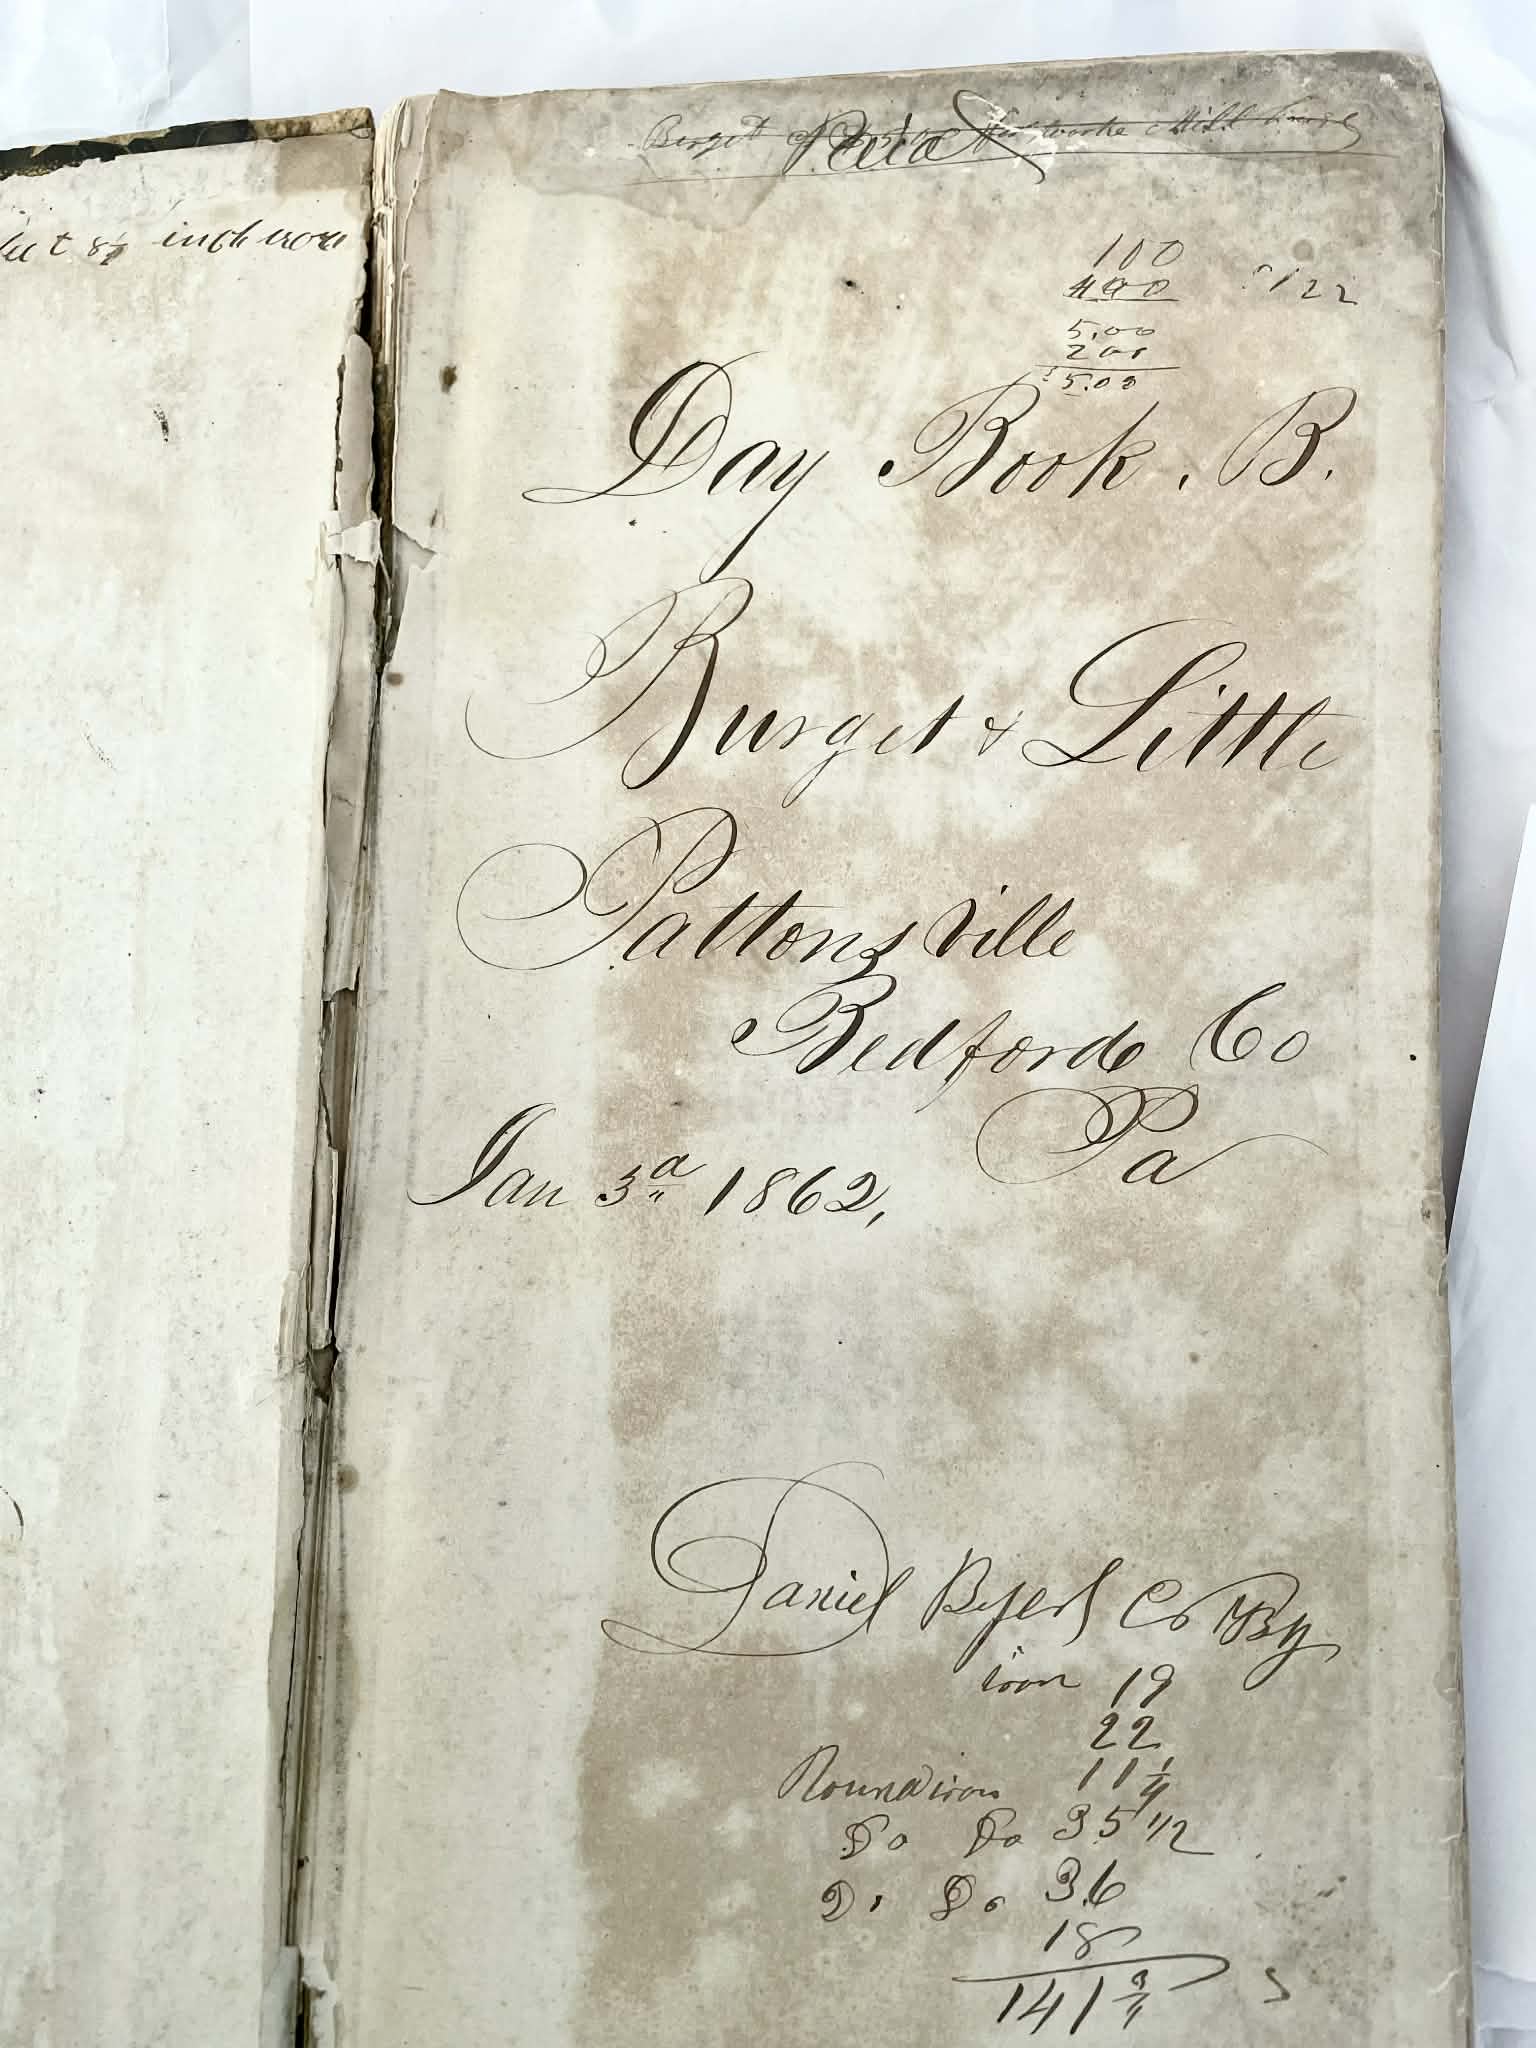 inch iron
Burget
Paid
100
400
122
5,00
200
5.00
Day Book . B.
Burget & Little
Pattonsville
Bedford Co
Pa
Jan 3d 1862,
Daniel Byers Cr By
iron 19
22
Round iron 11 1/4
Do Do 35 1/2
Do Do 36
18
141 3/4